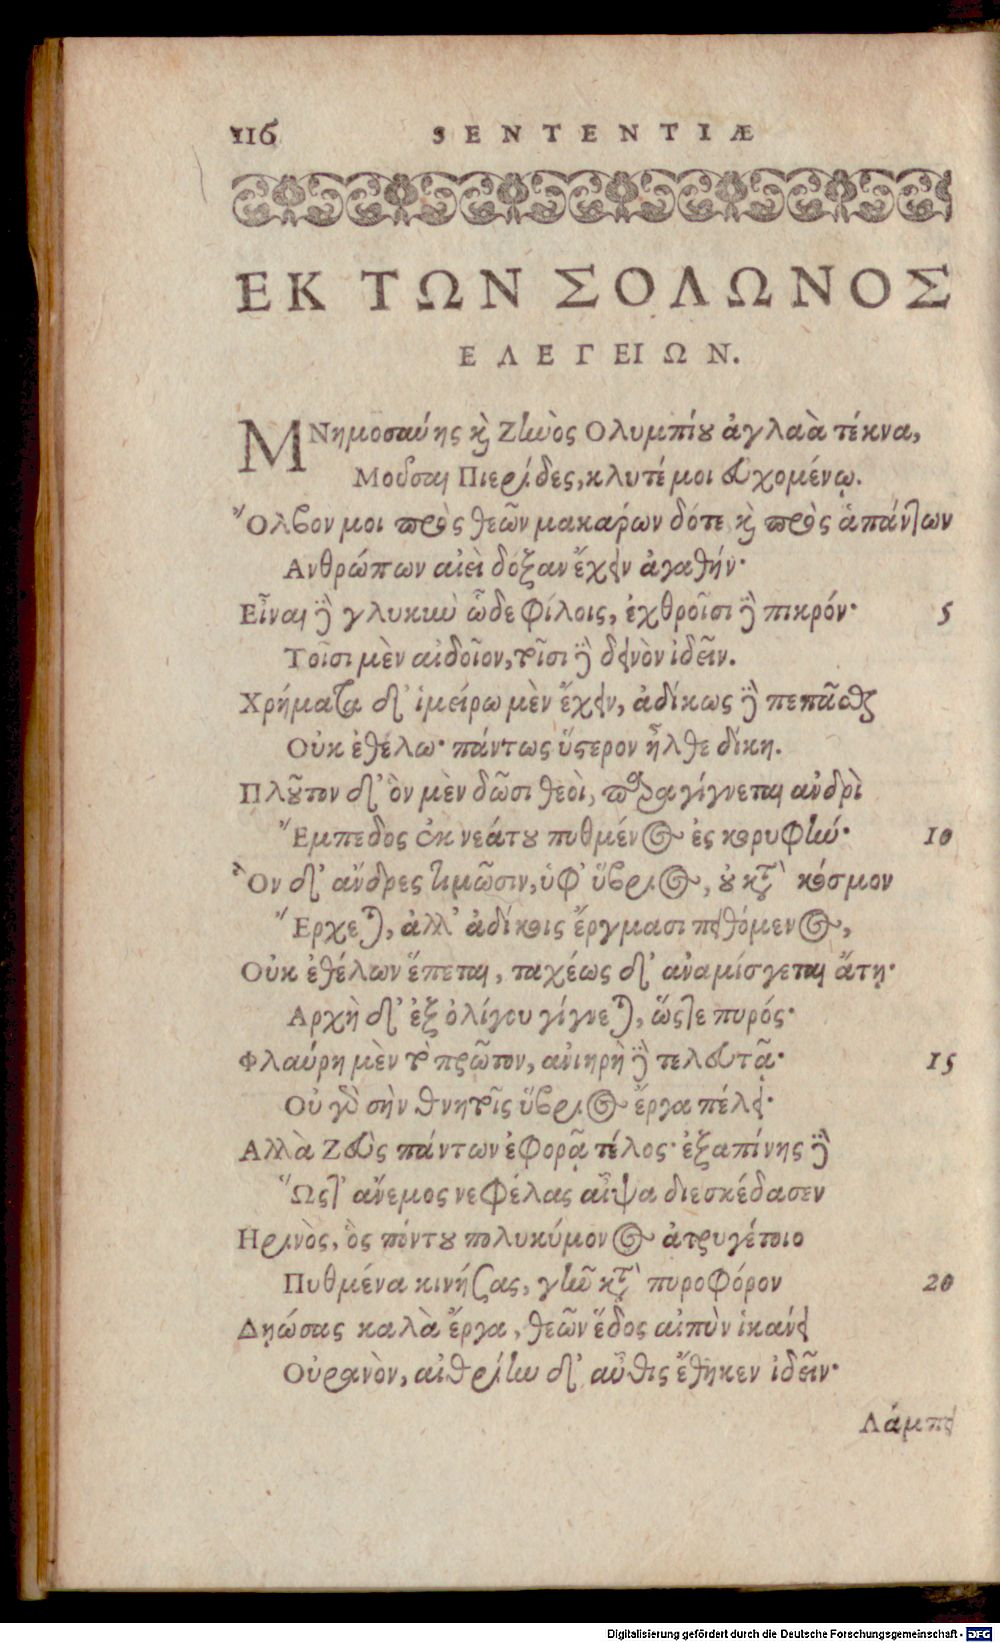 116 SENTENTIÆ
ΕΚ ΤΩΝ ΣΟΛΩΝΟΣ
ΕΛΕΓΕΙΩΝ.
ΜΝημοσύνης καὶ Ζηνὸς Ολυμπίου ἀγλαὰ τέκνα,
Μοῦσαι Πιερίδες, κλυτέ μοι εὐχομένῳ.
Ὄλβον μοι πρὸς θεῶν μακαρ́ων δότε καὶ πρὸς ἁπάντων
Ανθρώπων αἰεὶ δόξαν ἔχειν ἀγαθήν·
Εἶναι δὲ γλυκιὺ ὧδε φίλοις, ἐχθροῖσι δὲ πικρόν· 5
Τοῖσι μὲν αἰδοῖον, τοῖσι δὲ δεινὸν ἰδεῖν.
Χρήματα δ' ἱμείρω μὲν ἔχειν, ἀδίκως δὲ πεπᾶσθαι
Οὐκ ἐθέλω· πάντως ὕστερον ἦλθε δίκη.
Πλοῦτον δ' ὃν μὲν δῶσι θεὸι, παρὰ γίγνεται ἀνδρὶ
Ἔμπεδος ἐκ νεάτου πυθμένος ἐς κορυφήν· 10
Ὃν δ' ἄνδρες τιμῶσιν, ὑφ' ὕβριος, οὐ κατὰ κόσμον
Ἔρχεται, ἀλλ' ἀδίκοις ἔργμασι πειθόμενος,
Οὐκ ἐθέλων ἕπεται, ταχέως δ' ἀναμίσγεται ἄτη·
Αρχὴ δ' ἐξ ὀλίγου γίγνεται, ὥστε πυρός·
Φλαύρη μὲν τὸ πρῶτον, ἀνιηρὴ δὲ τελευτᾷ· 15
Οὐ γὰρ σὴν θνητοῖς ὕβριος ἔργα πέλει·
Αλλὰ Ζεὺς πάντων ἐφορᾷ τέλος· ἐξαπίνης δὲ
Ὥστ' ἄνεμος νεφέλας αἶψα διεσκέδασεν
Ηρινὸς, ὃς πόντου πολυκύμονος ἀτρυγέτοιο
Πυθμένα κινήσας, γῆν κατὰ πυροφόρον 20
Δῃώσας καλὰ ἔργα, θεῶν ἕδος αἰπὺν ἱκάνει
Οὐρανὸν, αἰθρίην δ' αὖθις ἔθηκεν ἰδεῖν·
Λάμπει
Digitalisierung gefördert durch die Deutsche Forschungsgemeinschaft - DFG